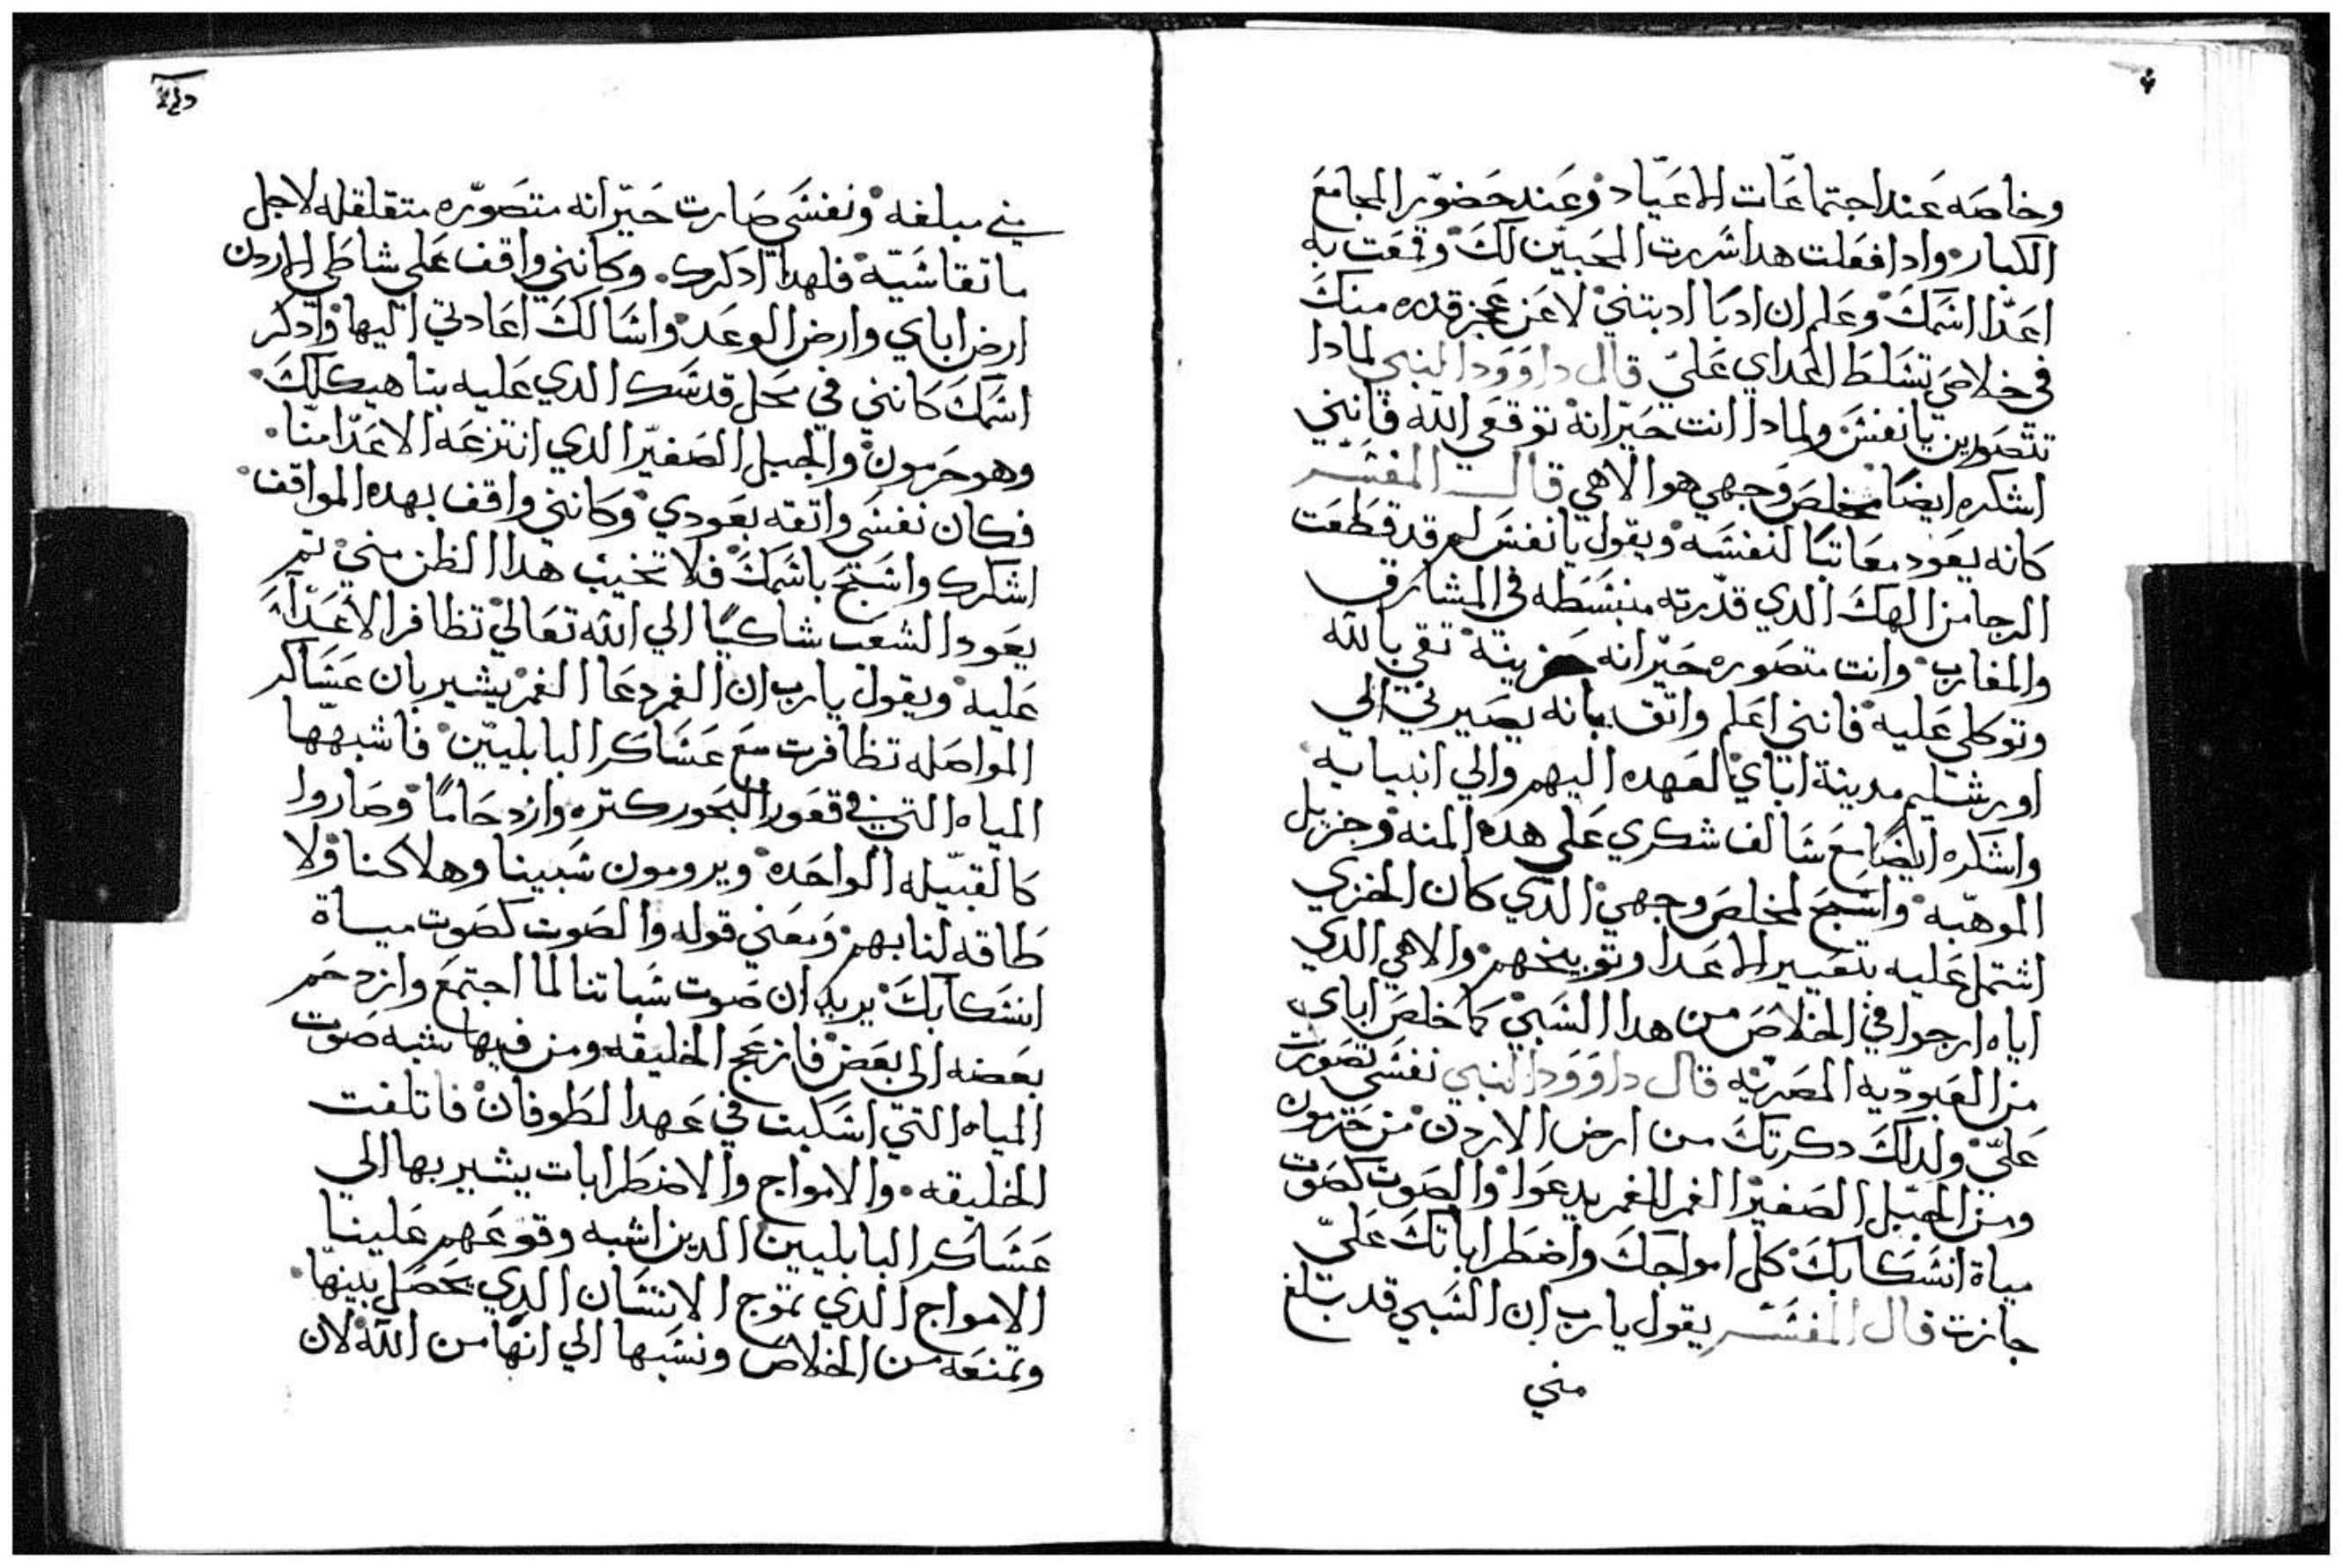 وخاصه عند اجتماعات الاعياد وعند حضور المجامع
الكبار وادا فعلت هدا سررت المحبين لك وقمعت به
اعدا اسمك وعلم ان ادبًا ادبتني لا عن عجز قدره منك
في خلاصي تسلط اعداي عليّ قال داوود النبي لمادا
تتصورين يا نفس ولمادا انت حيرانه توقعي الله فانني
اشكره ايضًا مخلص وجهي هو الاهي قال المفسر
كانه يعود معاتبًا لنفسه ويقول يا نفس لم قد قطعت
الرجا من الهك الدي قدرته منبسطه في المشارق
والمغارب وانت متصوره حيرانه حزينة تقي بالله
وتوكلي عليه فانني اعلم واتق بانه يصيرني الي
اورشليم مدينة اباي لعهده اليهم والي انبيايه
واشكره ايضًا مع سالف شكري علي هده المنه وجزيل
الموهبه واسبح لمخلص وجهي الدي كان الخزي
اشتمل عليه بتعيير الاعدا وتوبيخهم والاهي الدي
اياه ارجوا في الخلاص من هدا السبي كما خلص اباي
من العبوديه المصريه قال داوود النبي نفسي تصورت
عليّ ولدلك دكرتك من ارض الاردن من حرمون
ومن الجبل الصغير الغمر للغمر يدعوا والصوت كصوت
مياة انسكابك كل امواجك واضطراباتك عليّ
جازت قال المفسر يقول يا رب ان السبي قد بلغ
مني
مني مبلغه ونفسي صارت حيرانه متصوره متقلقله لاجل
ما تقاسيه فلهدا ادكرك وكانني واقف علي شاطي الاردن
ارض اباي وارض الوعد واسالك اعادتي اليها وادكر
اسمك كانني في محل قدسك الدي عليه بنا هيكلك
وهو حرمون والجبل الصغير الدي انتزعه الاعدا منا
فكان نفسي واتقه بعودي وكانني واقف بهده المواقف
اشكرك واسبح باسمك فلا تخيب هدا الظن مني تم
يعود الشعب شاكيًا الي الله تعالي تظافر الاعدا
عليه ويقول يا رب ان الغمر دعا الغمر يشير بان عساكر
المواصله تظافرت مع عساكر البابليين فاشبهها
المياه التي في قعور البحور كتره وازدحامًا وصاروا
كالقبيله الواحده ويرومون سبينا وهلاكنا ولا
طاقه لنا بهم ومعني قوله والصوت كصوت مياة
انسكابك يريد ان صوت سباتنا لما اجتمع وازدحم
بعضه الي بعض فازعج الخليقه ومن فيها شبه صوت
المياه التي اسكبت في عهد الطوفان فاتلفت
الخليقه والامواج والاضطرابات يشير بها الي
عساكر البابليين الدين اشبه وقوعهم علينا
الامواج الدي تموج الانسان الدي يحصل بينها
وتمنعه من الخلاص ونسبها الي انها من الله لان